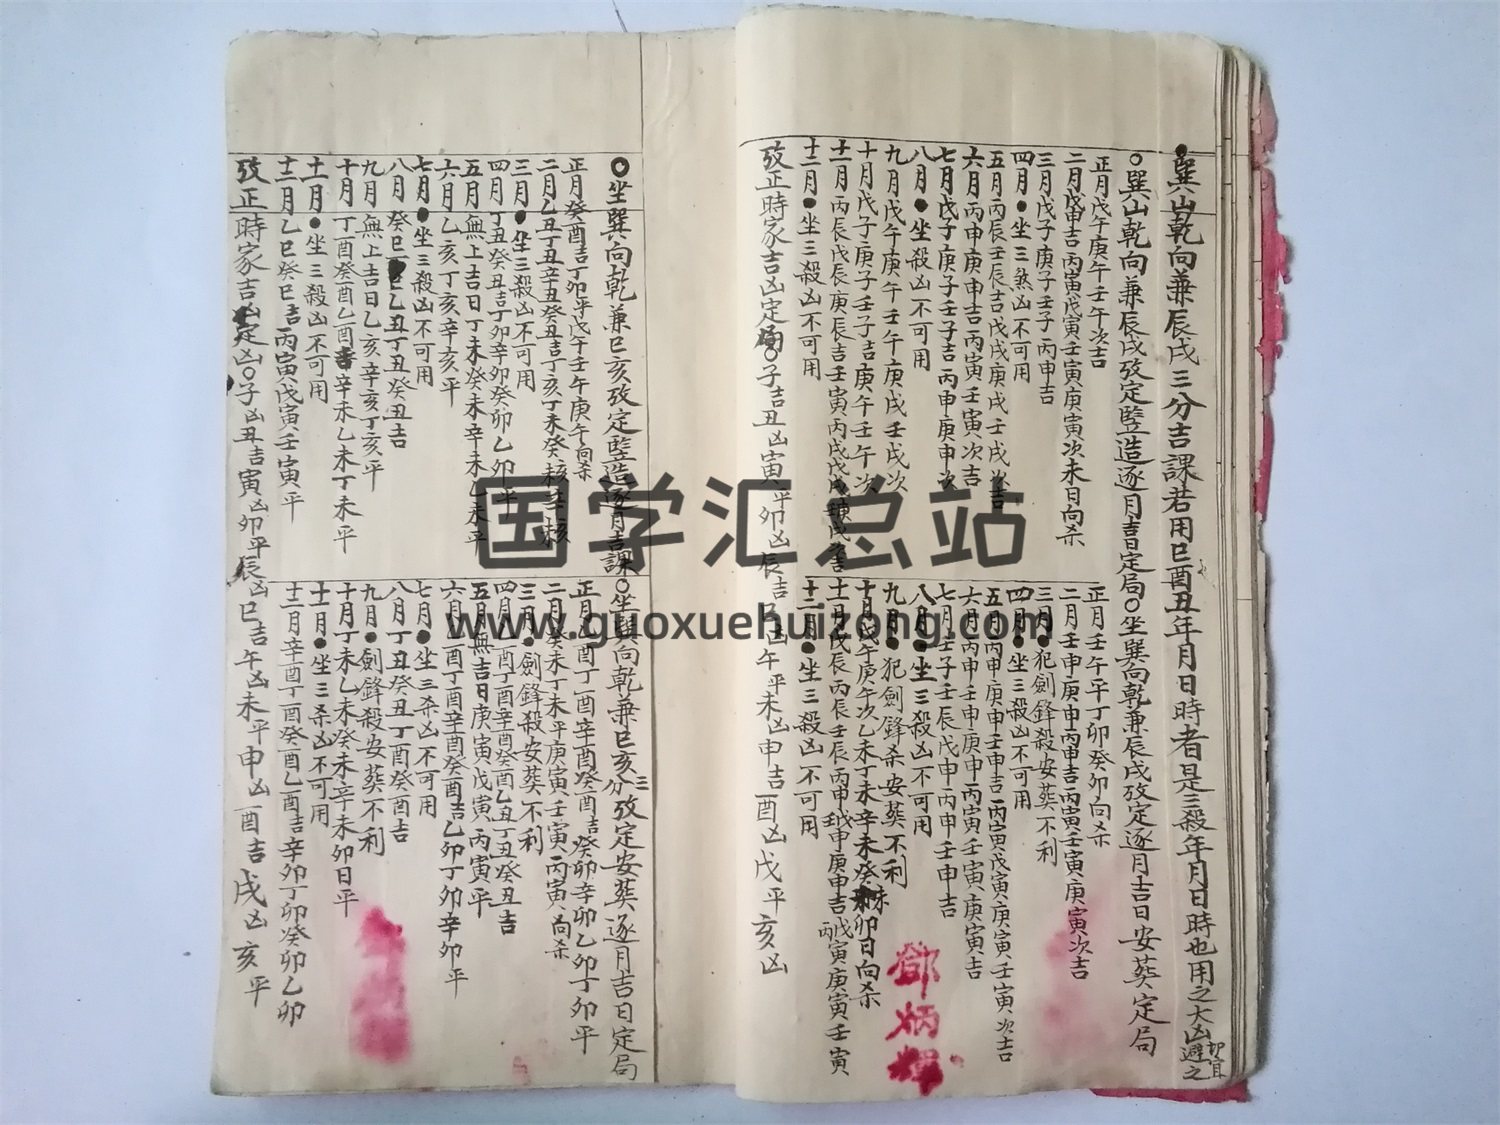 巽山乾向兼辰戌三分吉課若用巳酉丑年月日時者是三殺年月日時也用之大凶避之
○巽山乾向兼辰戌攷定豎造逐月吉日定局○坐巽向乾兼辰戌攷定逐月吉日安葬定局
正月戊午庚午壬午次吉
二月戊申吉丙寅戊寅壬寅庚寅次未日向杀
三月戊子庚子壬子丙申吉
四月●坐三煞凶不可用
五月丙辰壬辰吉戊戌庚戌壬戌次吉
六月丙申庚申吉丙寅壬寅次吉
七月戊子庚子壬子吉丙申庚申次
八月●坐殺凶不可用
九月戊午庚午壬午庚戌壬戌次
十月戊子庚子壬子吉庚午壬午次
十一月丙辰戊辰庚辰吉壬寅丙戌戊戌
十二月●坐三殺凶不可用
正月壬午平丁卯癸卯向杀
二月壬申庚申丙申吉丙寅壬寅庚寅次吉
三月●犯劍鋒殺安葬不利
四月●坐三殺凶不可用
五月丙申庚申壬申吉丙寅戊寅庚寅壬寅次吉
六月丙申壬申庚申丙寅壬寅庚寅吉
七月壬子壬辰戊申丙申壬申吉
八月●坐三殺凶不可用
九月●犯劍鋒杀安葬不利
十月戊午庚午次乙未丁未辛未癸未卯日向杀
十一月戊辰丙辰壬辰丙申戊申庚申吉丙戊寅庚寅壬寅
十二月●坐三殺凶不可用
攷正時家吉凶定局○子吉丑凶寅平卯凶辰吉巳凶午平未凶申吉酉凶戌平亥凶
鄧炳輝
○坐巽向乾兼巳亥攷定豎造逐月吉課○坐巽向乾兼巳亥三分攷定安葬逐月吉日定局
正月癸酉吉丁卯平戊午壬午庚午向杀
二月乙丑丁丑辛丑癸丑吉丁亥丁未癸
三月●坐三殺凶不可用
四月丁丑癸丑吉丁卯辛卯癸卯乙卯平
五月無上吉日丁未癸未辛未乙未平
六月乙亥丁亥辛亥平
七月●坐三殺凶不可用
八月癸巳乙丑丁丑癸丑吉
九月無上吉日乙亥辛亥丁亥平
十月丁酉癸酉乙酉吉辛未乙未丁未平
十一月●坐三殺凶不可用
十二月乙巳癸巳吉丙寅戊寅壬寅平
正月乙酉丁酉辛酉癸酉吉癸卯辛卯乙卯丁卯平
二月癸未丁未平庚寅壬寅丙寅向杀
三月●劍鋒殺安葬不利
四月乙酉丁酉辛酉癸酉乙丑丁丑癸丑吉
五月無吉日庚寅戊寅丙寅平
六月乙酉丁酉辛酉癸酉吉乙卯丁卯辛卯平
七月●坐三杀凶不可用
八月丁丑癸丑丁酉癸酉吉
九月●劍鋒殺安葬不利
十月丁未乙未癸未辛未卯日平
十一月●坐三杀凶不可用
十二月辛酉丁酉癸酉乙酉吉辛卯丁卯癸卯乙卯
攷正時家吉凶定凶○子凶丑吉寅凶卯平辰凶巳吉午凶未平申凶酉吉戌凶亥平
国学汇总站
www.guoxuehuizong.com